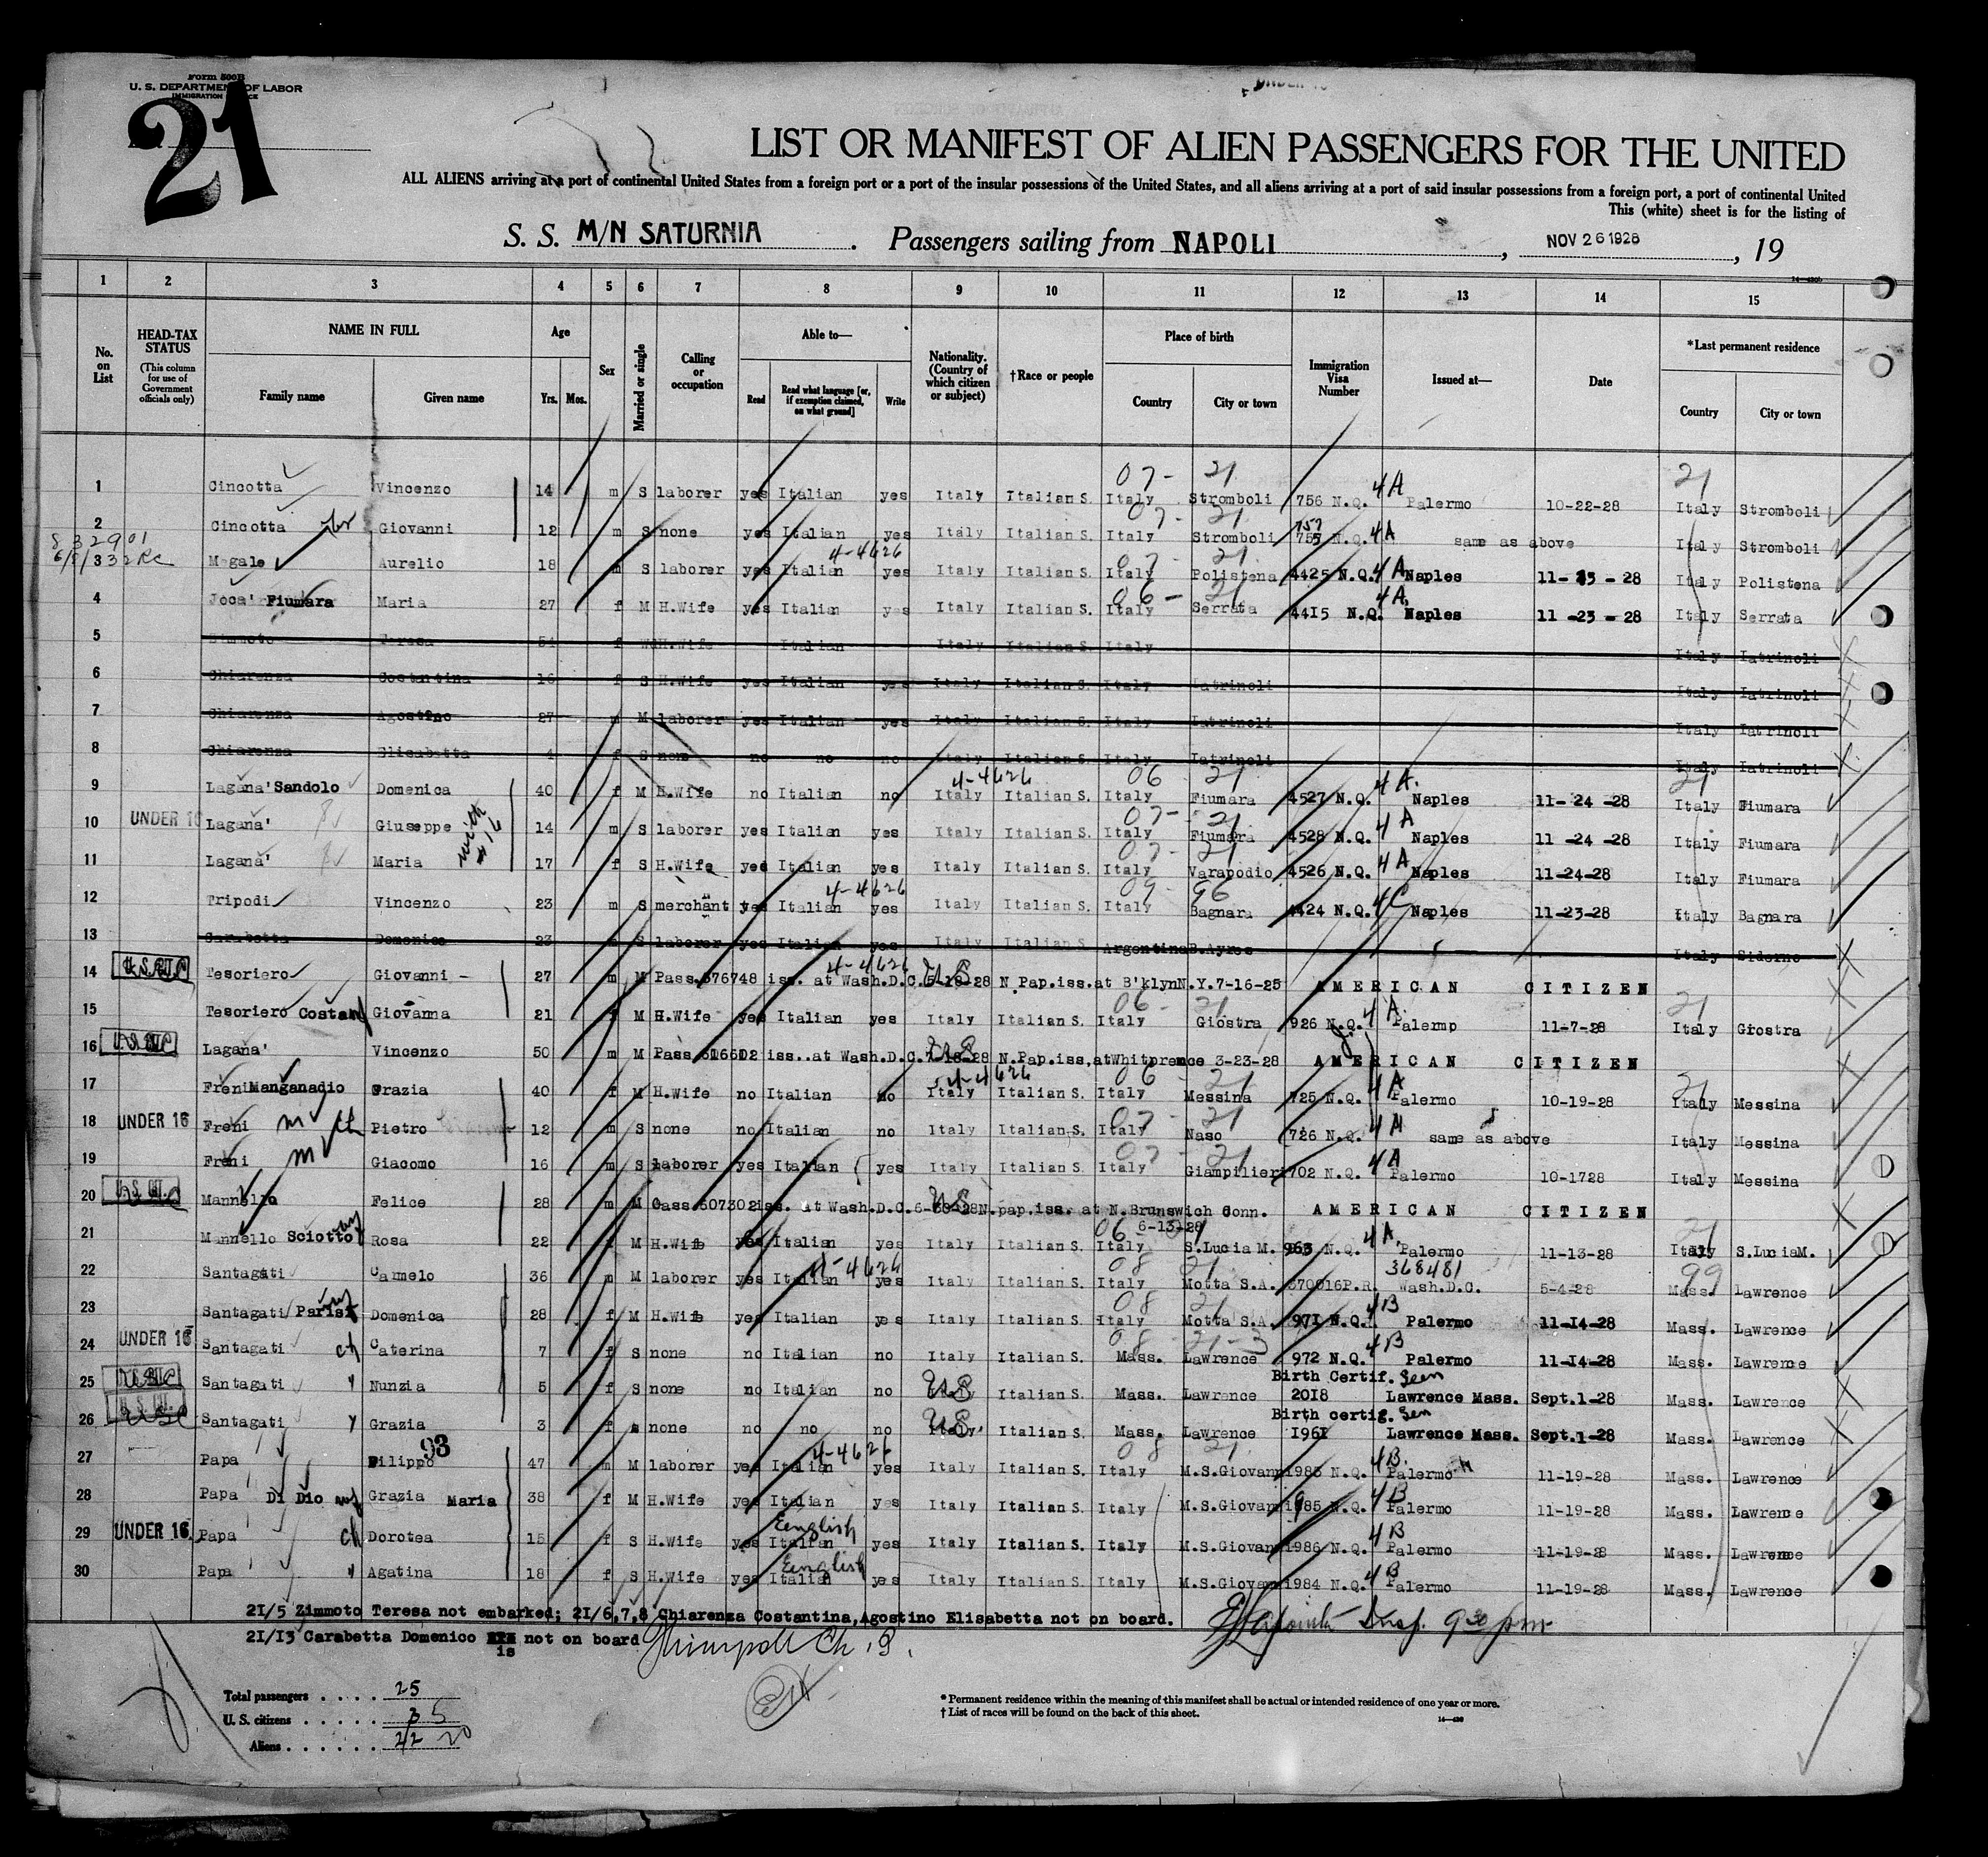 Form 500B
U. S. DEPARTMENT OF LABOR
IMMIGRATION SERVICE
21
LIST OR MANIFEST OF ALIEN PASSENGERS FOR THE UNITED
ALL ALIENS arriving at a port of continental United States from a foreign port or a port of the insular possessions of the United States, and all aliens arriving at a port of said insular possessions from a foreign port, a port of continental United
This (white) sheet is for the listing of
S. S. M/N SATURNIA . Passengers sailing from NAPOLI , NOV 26 1928 , 19
1 2 3 4 5 6 7 8 9 10 11 12 13 14 15
No. on List HEAD-TAX STATUS (This column for use of Government officials only) NAME IN FULL Family name Given name Age Yrs. Mos. Sex Married or single Calling or occupation Able to— Read Read what language [or, if exemption claimed, on what ground] Write Nationality. (Country of which citizen or subject) †Race or people Place of birth Country City or town Immigration Visa Number Issued at— Date *Last permanent residence Country City or town
07- 21 21
1 Cincotta Vincenzo 14 m S laborer yes Italian yes Italy Italian S. Italy Stromboli 756 N.Q. 4A Palermo 10-22-28 Italy Stromboli
07- 21
2 Cincotta br Giovanni 12 m S none yes Italian yes Italy Italian S. Italy Stromboli 757 N.Q. 4A same as above Italy Stromboli
4-4626 07- 21
3 Magale Aurelio 18 m S laborer yes Italian yes Italy Italian S. Italy Polistena 4425 N.Q. 4A Naples 11-23-28 Italy Polistena
06- 21
4 Joca' Fiumara Maria 27 f M H.Wife yes Italian yes Italy Italian S. Italy Serrata 4415 N.Q. 4A Naples 11-23-28 Italy Serrata
5 Zimmoto Teresa 54 f Wd H.Wife Italian Italy Italian S. Italy Italy Iatrinoli
6 Chiarenza Costantina 16 f S H.Wife yes Italian yes Italy Italian S. Italy Iatrinoli Italy Iatrinoli
7 Chiarenza Agostino 27 m M laborer yes Italian yes Italy Italian S. Italy Iatrinoli Italy Iatrinoli
8 Chiarenza Elisabetta 4 f S none no no no Italy Italian S. Italy Iatrinoli Italy Iatrinoli
4-4626 06 21 21
9 Lagana' Sandolo Domenica 40 f M H.Wife no Italian no Italy Italian S. Italy Fiumara 4527 N.Q. 4A. Naples 11-24-28 Italy Fiumara
07- 21
10 UNDER 16 Lagana' Giuseppe with #16 14 m S laborer yes Italian yes Italy Italian S. Italy Fiumara 4528 N.Q. 4A Naples 11-24-28 Italy Fiumara
07- 21
11 Lagana' Maria 17 f S H.Wife yes Italian yes Italy Italian S. Italy Varapodio 4526 N.Q. 4A Naples 11-24-28 Italy Fiumara
4-4626
12 Tripodi Vincenzo 23 m S merchant yes Italian yes Italy Italian S. Italy Bagnara 4424 N.Q. 4C Naples 11-23-28 Italy Bagnara
13 Carabetta Domenico 23 m S laborer yes Italian yes Italy Italian S. Argentina B.Ayres Italy Siderno
4-4626 US
14 Tesoriero Giovanni 27 m M Pass.576748 iss. at Wash.D.C.5-18-28 N.Pap.iss.at B'klynN.Y.7-16-25 AMERICAN CITIZEN
06- 21 21
15 Tesoriero Costan Giovanna 21 f M H.Wife yes Italian yes Italy Italian S. Italy Giostra 926 N.Q. 4A. Palermo 11-7-28 Italy Giostra
16 Lagana' Vincenzo 50 m M Pass. iss..at Wash.D.C.7-18-28 N.Pap.iss,at 3-23-28 AMERICAN CITIZEN
4-4626 06- 21 21
17 Freni Manganadio Grazia 40 f M H.Wife no Italian no Italy Italian S. Italy Messina 725 N.Q. 4A Palermo 10-19-28 Italy Messina
07- 21
18 UNDER 16 Freni m ch Pietro 12 m S none no Italian no Italy Italian S. Italy Naso 726 N.Q. 4A same as above Italy Messina
07- 21
19 Freni m Giacomo 16 m S laborer yes Italian yes Italy Italian S. Italy Giampilieri 702 N.Q. 4A Palermo 10-1728 Italy Messina
20 Mannello Felice 28 m M Pass.507302 iss. at Wash.D.C. N.pap.iss. at N.Brunswich Conn. AMERICAN CITIZEN
6-13-28
21 Mannello Sciotto wf Rosa 22 f M H.Wife yes Italian yes Italy Italian S. Italy S.Lucia M. 963 N.Q. 4A. Palermo 11-13-28 Italy S.LuciaM.
4-4626 08 21 368481 99
22 Santagati Carmelo 36 m M laborer yes Italian yes Italy Italian S. Italy Motta S.A. 370016P.R. Wash.D.C. 5-4-28 Mass. Lawrence
08 21
23 Santagati Parisi wf Domenica 28 f M H.Wife yes Italian yes Italy Italian S. Italy Motta S.A. 971 N.Q. 4B Palermo 11-14-28 Mass. Lawrence
08-21-3
24 UNDER 16 Santagati ch Caterina 7 f S none no Italian no Italy Italian S. Mass. Lawrence 972 N.Q. 4B Palermo 11-14-28 Mass. Lawrence
Birth Certif. Seen
25 Santagati " Nunzia 5 f S none no Italian no US Italian S. Mass. Lawrence 2018 Lawrence Mass. Sept.1-28 Mass. Lawrence
Birth certig. Seen
26 Santagati " Grazia 3 f s none no no no US Italian S. Mass. Lawrence 1961 Lawrence Mass. Sept.1-28 Mass. Lawrence
93 4-4626 08 21
27 Papa Filippo 47 m M laborer yes Italian yes Italy Italian S. Italy M.S.Giovan 1983 N.Q. 4B. Palermo 11-19-28 Mass. Lawrence
28 Papa Di Dio wf Grazia Maria 38 f M H.Wife yes Italian yes Italy Italian S. Italy M.S.Giovan 1985 N.Q. 4B Palermo 11-19-28 Mass. Lawrence
English
29 UNDER 16 Papa ch Dorotea 15 f S H.Wife yes Italian yes Italy Italian S. Italy M.S.Giovan 1986 N.Q. 4B Palermo 11-19-28 Mass. Lawrence
English
30 Papa " Agatina 18 f S H.Wife yes Italian yes Italy Italian S. Italy M.S.Giovan 1984 N.Q. 4B Palermo 11-19-28 Mass. Lawrence
21/5 Zimmoto Teresa not embarked; 21/6,7,8 Chiarenza Costantina,Agostino Elisabetta not on board.
Insp. 9 30 pm
21/13 Carabetta Domenico is not on board
Total passengers . . . . 25
U. S. citizens . . . . . 3 5
Aliens . . . . . . 22 20
* Permanent residence within the meaning of this manifest shall be actual or intended residence of one year or more.
† List of races will be found on the back of this sheet.